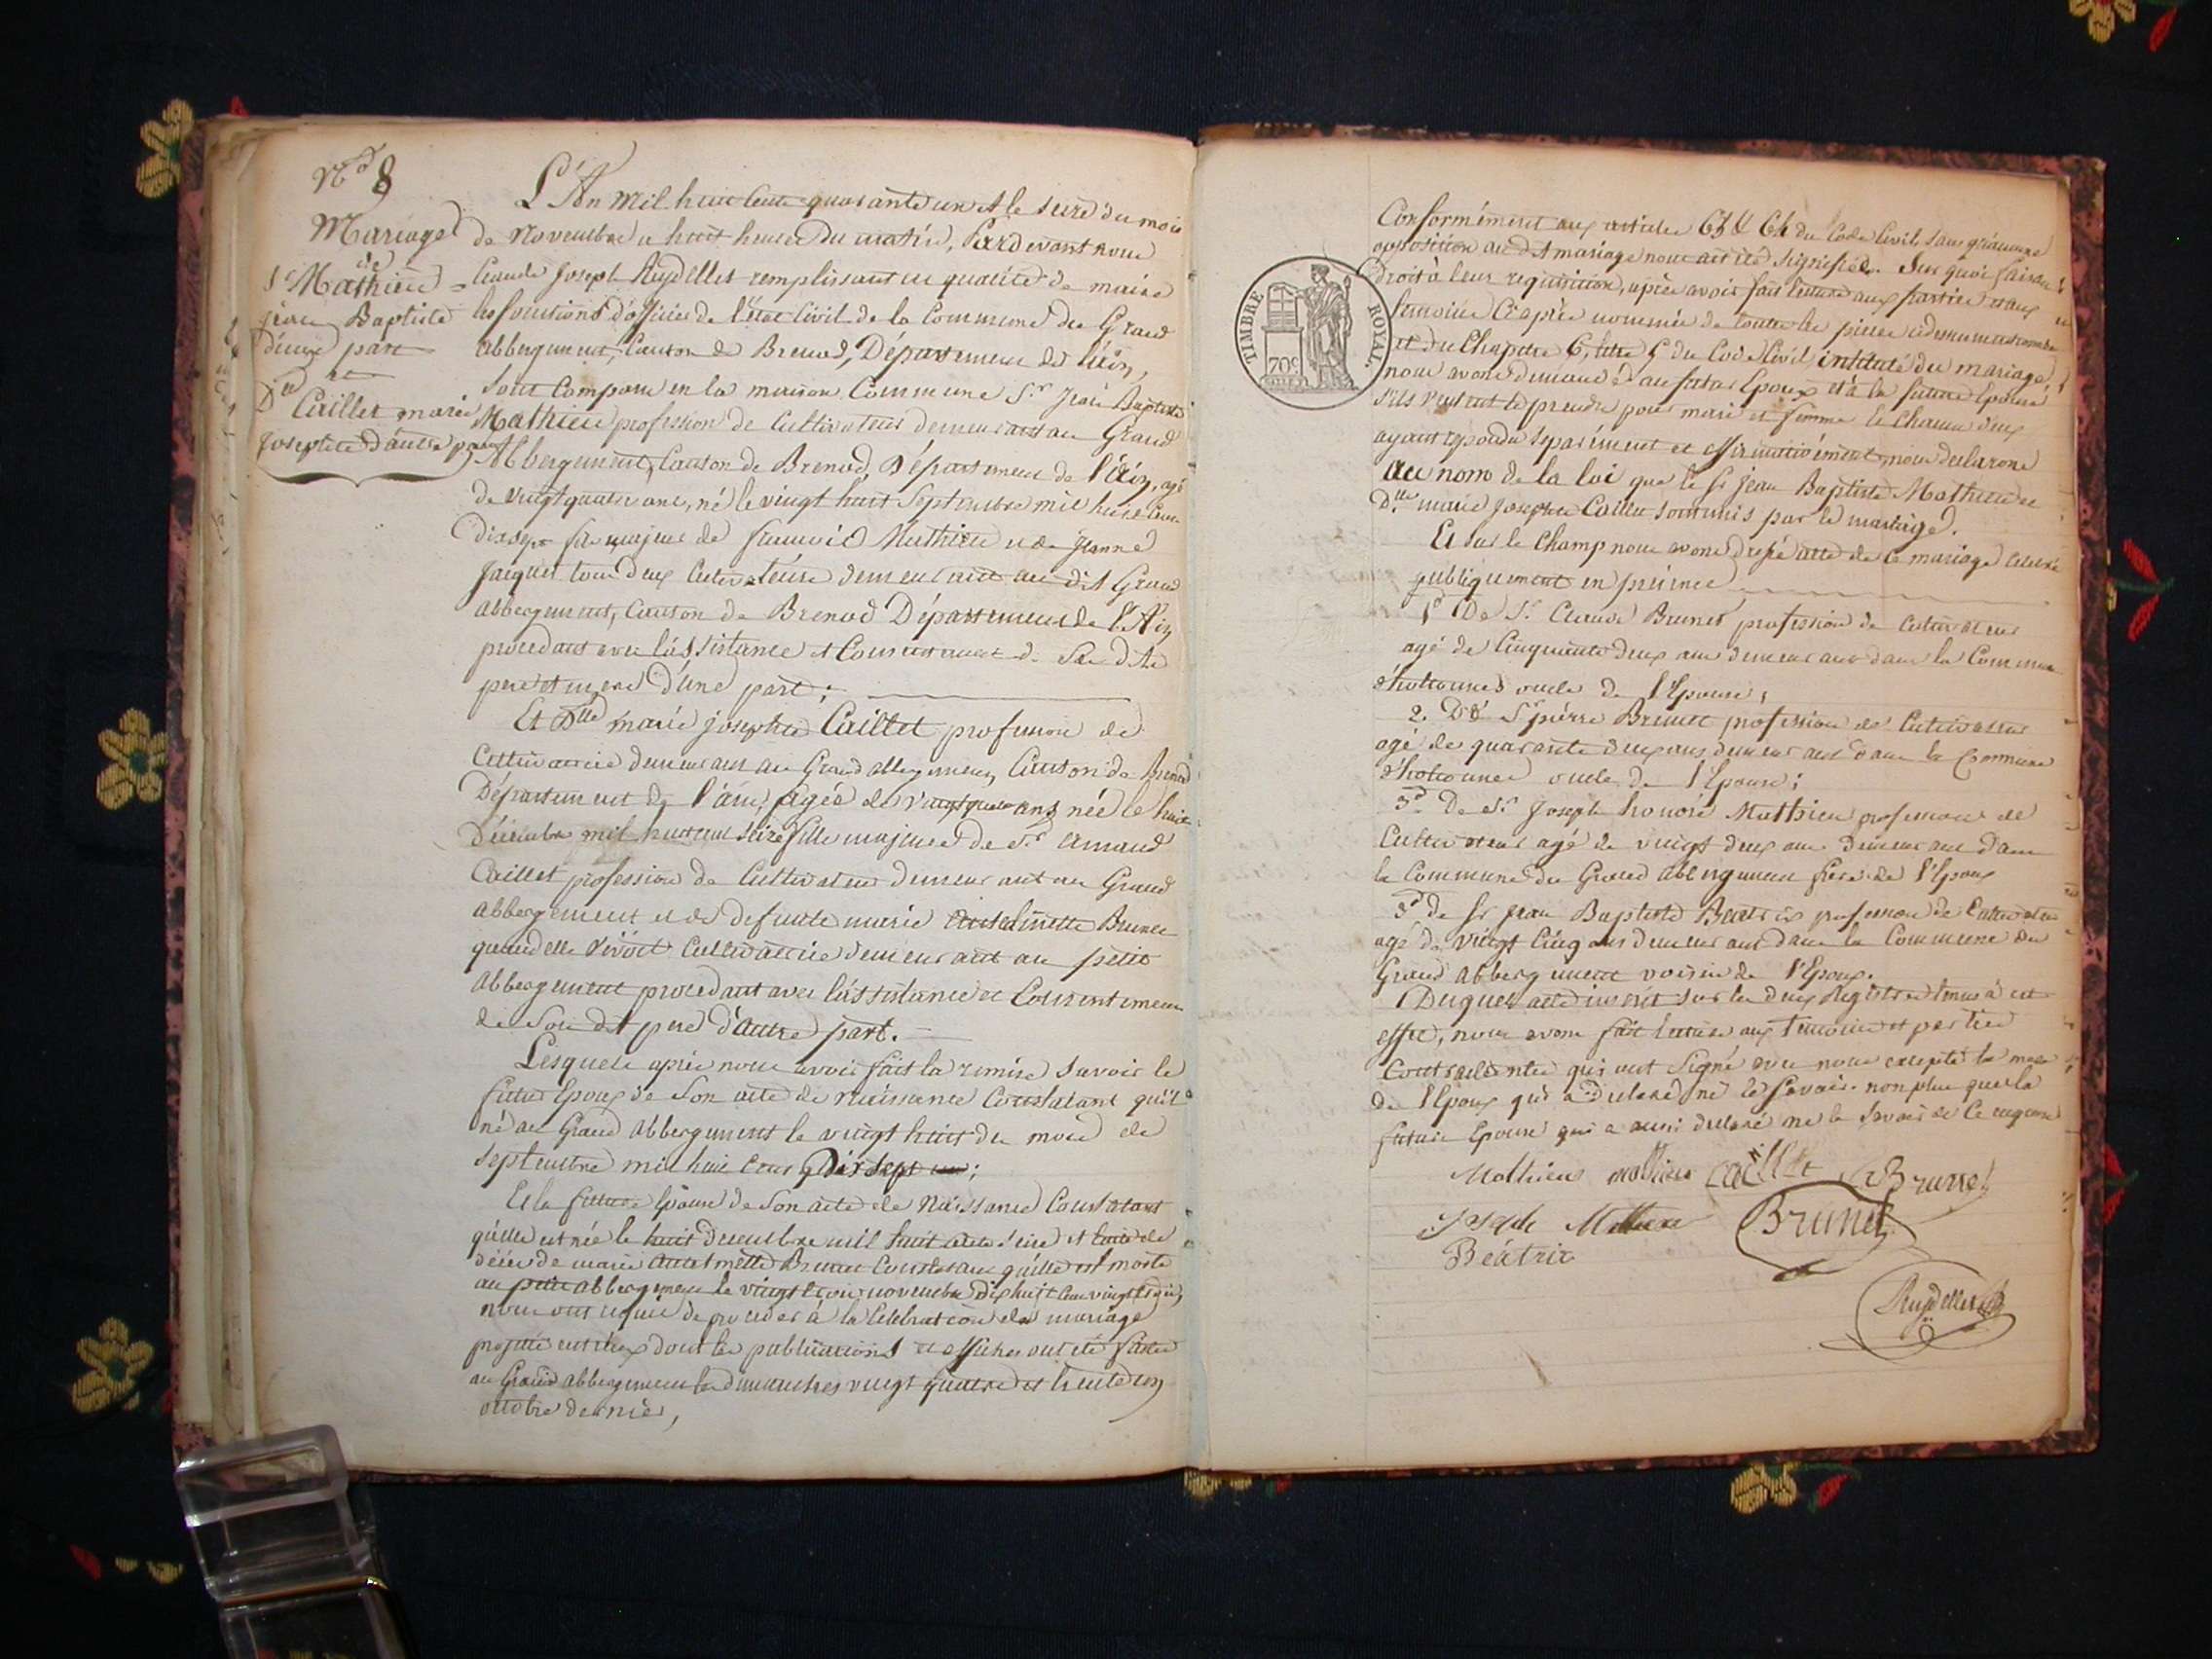 N.o 8
Mariage
de
Sr Mathieu
jean Baptiste
d'une part
et
Dlle
Caillet marie
Josephte d'autre part
L'An mil huit cent quarante un et le seize du mois
de Novembre a huit heures du matin, Pardevant nous
Claude Joseph Aujdellet remplissant en qualité de maire
les fonctions d'officier de l'état Civil de la Commune du Grand
abbergement, Canton de Brenod, Département de l'ain,
sont comparu en la maison Commune Sr Jean Baptiste
Mathieu profession de Cultivateur demeurant au Grand
Abbergement, Canton de Brenod, Département de l'Ain, agé
de vingt quatre ans, né le vingt huit Septembre mil huit cent
dix sept fils majeur de francois Mathieu et de Jeanne
Jacquet tous deux Cultivateurs demeurant au dit Grand
abbergement, Canton de Brenod Département de l'Ain
procedant avec l'assistance et Consentement de Ses dits
pere et mere d'une part;
Et Dlle marie josephte Caillet profession de
Cultivatrice demeurant au Grand abbergement, Canton de Brenod
Département de l'ain, agée de vingt quatre ans née le huit
Décembre mil huit cent seize fille majeure de Sr amand
Caillet profession de Cultivateur demeurant au Grand
abbergement et de defunte marie Brunet
quand elle vivoit Cultivatrice demeurant au petit
abbergement procedant avec l'assistance et Consentement
de Son dit pere d'autre part.
Lesquels après nous avoir fait la remise savoir le
futur Epoux de Son acte de naissance Constatant qu'il est
né au Grand abbergement le vingt huit du mois de
septembre mil huit cent Dix sept;
Et la future Epouse de Son acte de Naissance Constatant
qu'elle est née le huit decembre mil huit cent seize et l'acte de
décès de marie Brunet Constatant qu'elle est morte
au petit abbergement le vingt novembre dix huit cent vingt
nous ont requis de proceder à la Celebration du mariage
projetté entr'eux dont les publications et affiches ont été faites
au Grand abbergement les dimanches vingt quatre et trente un
octobre dernier,
TIMBRE ROYAL.
70c
Conformément aux articles 63 & 64 du Code Civil, sans qu'aucune
opposition au dit mariage nous ait été signifiée. Sur quoi faisant
droit à leur requisition, après avoir fait lecture aux parties et aux
temoins ci après nommés de toutes les pieces cidessus mentionnées
et du Chapitre 6, titre 5 du Code Civil intitulé du mariage,
nous avons demandé au futur Epoux et à la future Epouse
s'ils veulent se prendre pour mari et femme et Chacun d'eux
ayant repondu séparément et affirmativement, nous declarons
au nom de la loi que le Sr jean Baptiste Mathieu et
Dlle marie josephte Caillet sont unis par le mariage.
Et sur le champ nous avons dressé acte de ce mariage celebré
publiquement en presence
1o De Sr Claude Brunet profession de Cultivateur
agé de Cinquante deux ans demeurant dans la Commune
d'hotonnes oncle de l'Epouse;
2. De Sr pierre Brunet profession de Cultivateur
agé de quarante deux ans demeurant dans la Commune
d'hotonnes oncle de l'Epouse;
3o De Sr Joseph honoré Mathieu profession de
Cultivateur agé de vingt deux ans demeurant dans
la Commune du Grand abbergement frere de l'Epoux
3o de Sr Jean Baptiste Béatrix profession de Cultivateur
agé de vingt Cinq ans demeurant dans la Commune du
Grand abbergement voisin de l'Epoux.
Duquel acte inscrit sur les deux Registres tenus à cet
effet, nous avons fait lecture aux temoins et parties
Contractantes qui ont signé avec nous excepté la mere
de l'Epoux qui a déclaré ne le savoir non plus que la
future Epouse qui a aussi declaré ne le savoir de ce enquise
Mathieu mathieu Caillet Brunet
Joseph Mathieu Brunet
Béatrix
Aujdellet